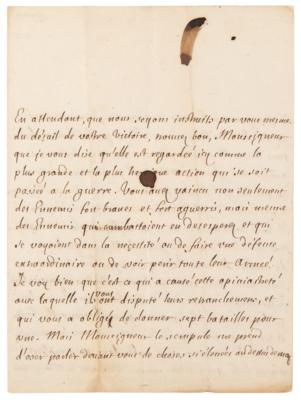 En attendant, que nous soyons instruits par vous mesme
du détail de vostre victoire, bon, Monseigneur
que je vous dise qu'elle est regardée icy comme la
plus grande et la plus heroique action qui se soit
passée a la guerre. Vous avez vaincu non seulement
des Ennemis fort braves et fort aguerris, mais mesme
des Ennemis qui combattoient en desesperez et qui
se voyoient dans la necessité ou de faire une défense
extraordinaire ou de voir perir toute leur Armée.
Je voy bien que c'est ce qui a causé cette opiniastreté
avec laquelle ils ont disputé leurs retranchemens, et
qui vous a obligé de donner sept batailles pour
une. Mais Monseigneur le scrupule me prend
d'oser parler devant vous de choses si élevées au dessus de moy